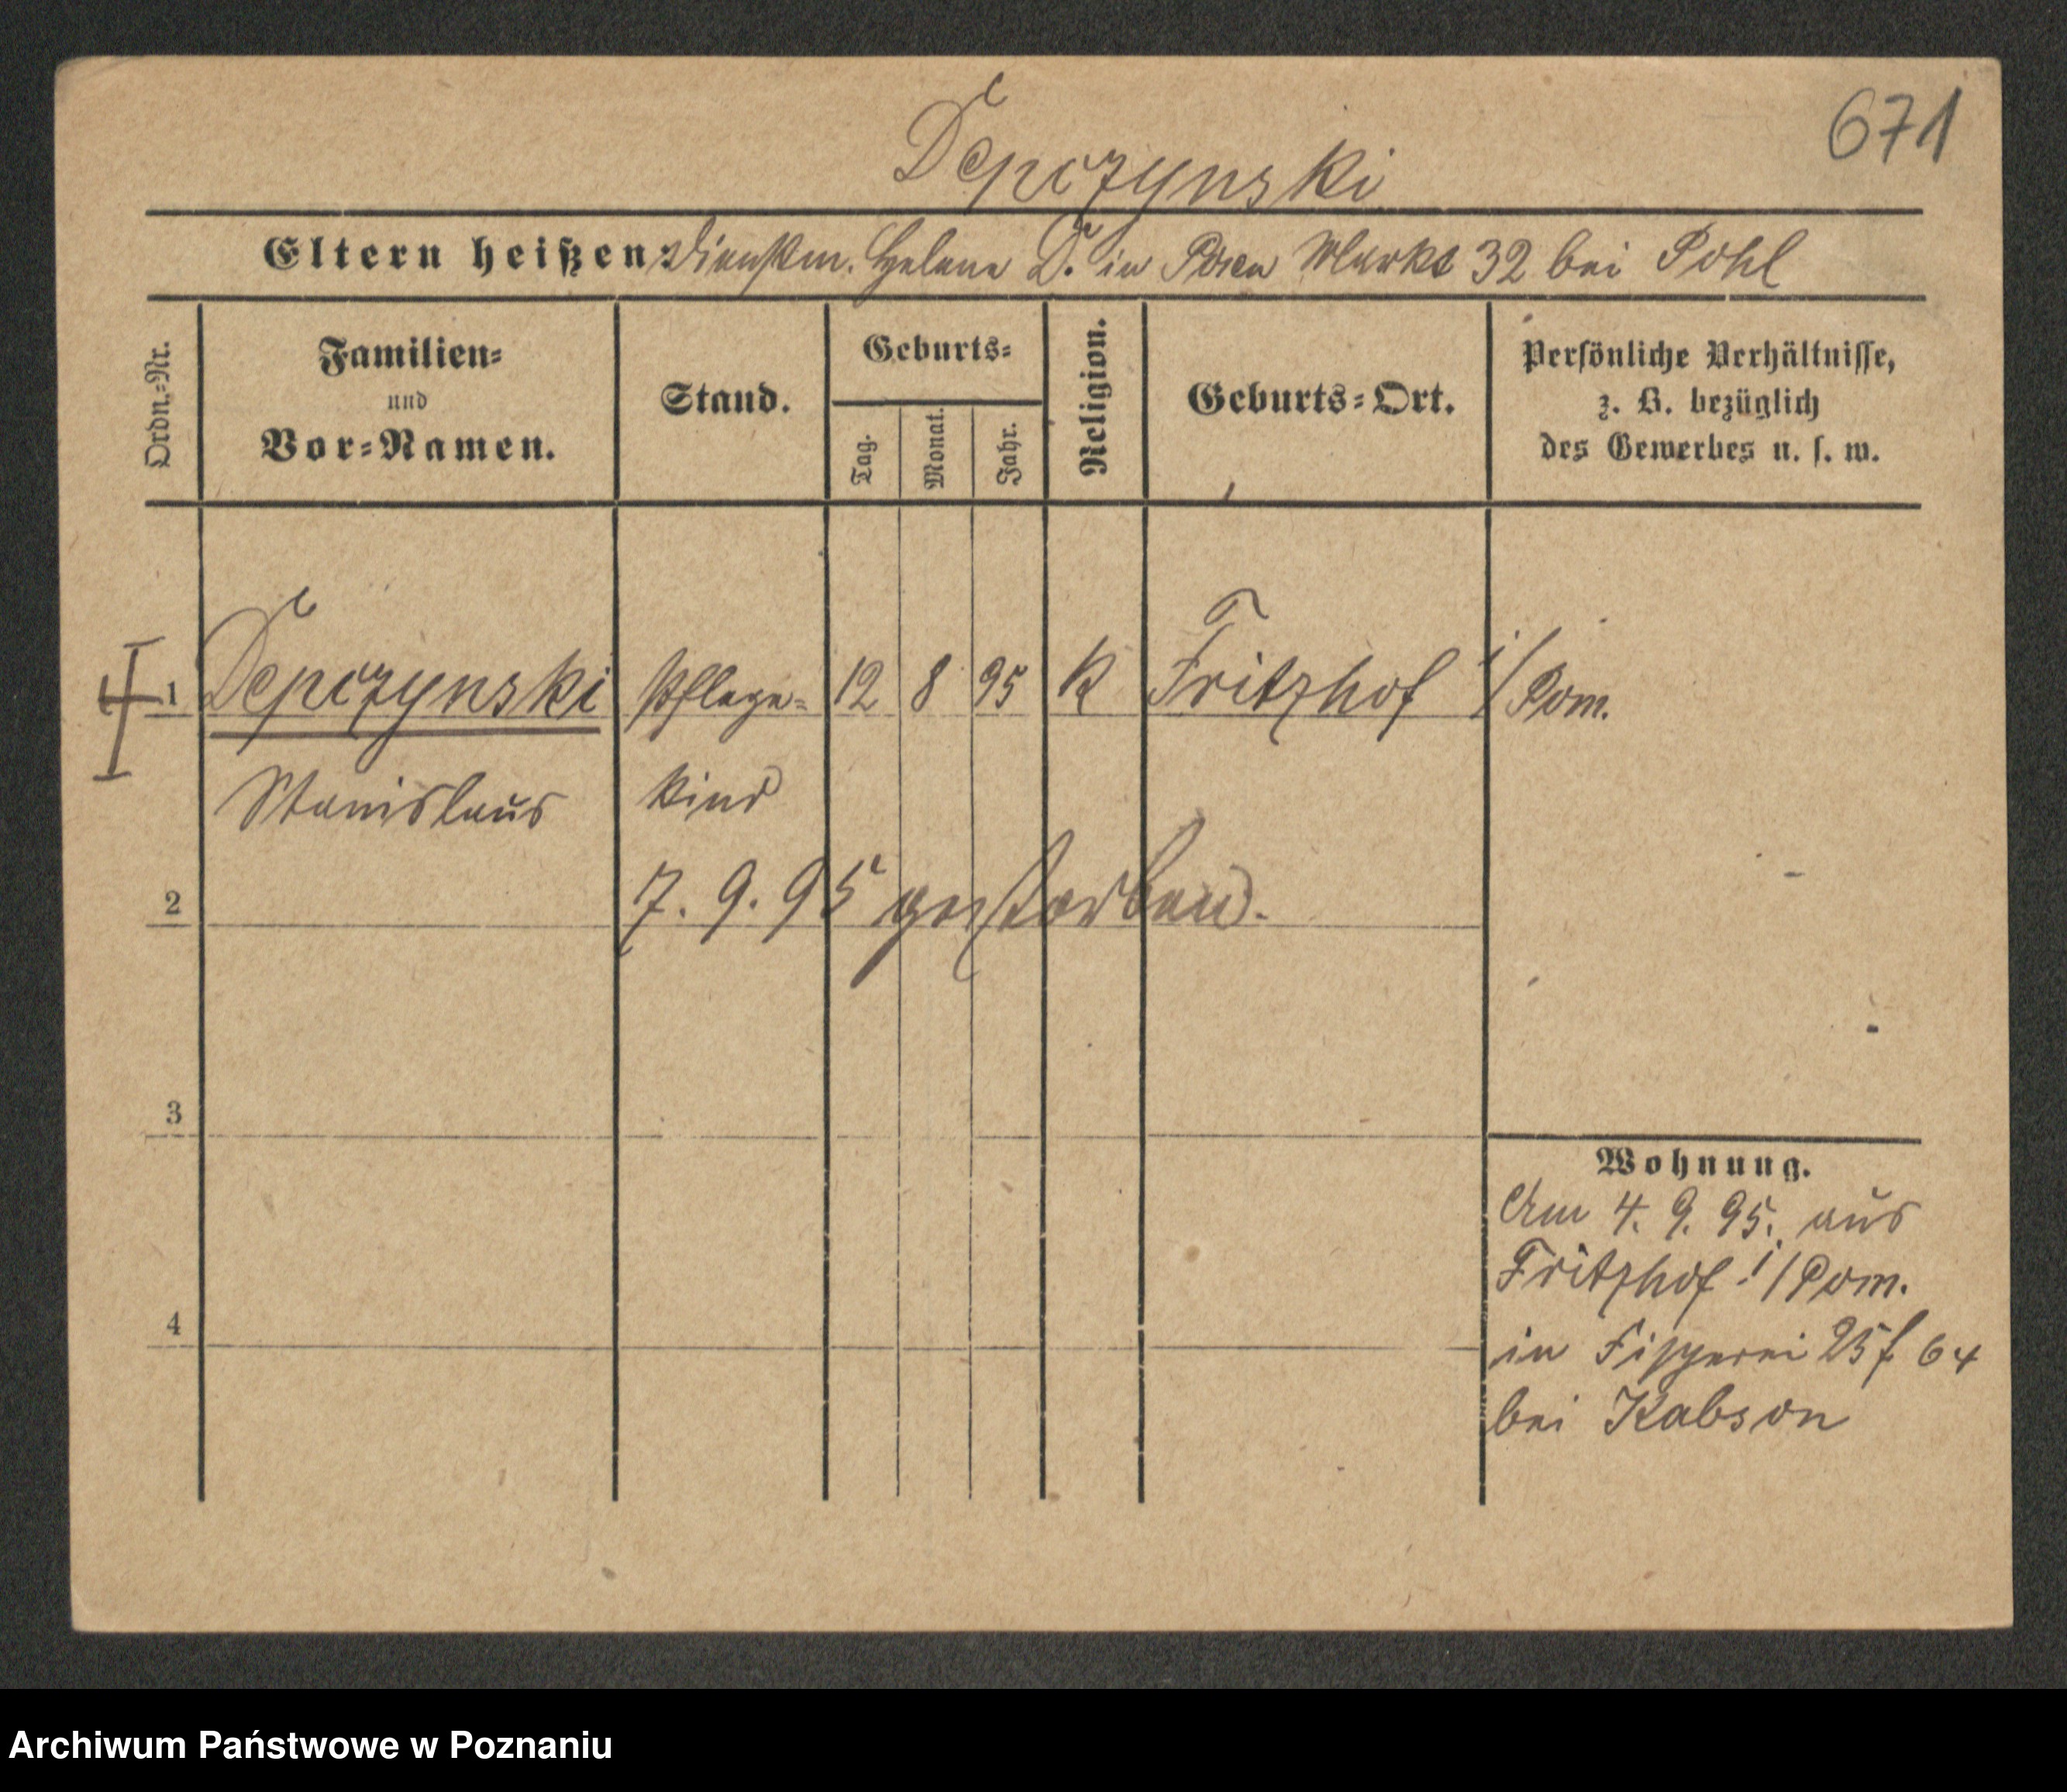 671
Depczynski
Eltern heißen: Dienstm. Helene D. in Posen Markt 32 bei Pohl
Ordn.-Nr.
Familien-
und
Vor-Namen.
Stand.
Geburts-
Tag.
Monat.
Jahr.
Religion.
Geburts-Ort.
Persönliche Verhältnisse,
z. B. bezüglich
des Gewerbes u. s. w.
1 Depczynski Pflege- 12 8 95 K Fritzhof i/Pom.
Stanislaus kind
2 7. 9. 95 gestorben.
3
Wohnung.
Am 4. 9. 95. aus
Fritzhof i/Pom.
4
in Fischerei 25 f 64
bei Kabson
Archiwum Państwowe w Poznaniu